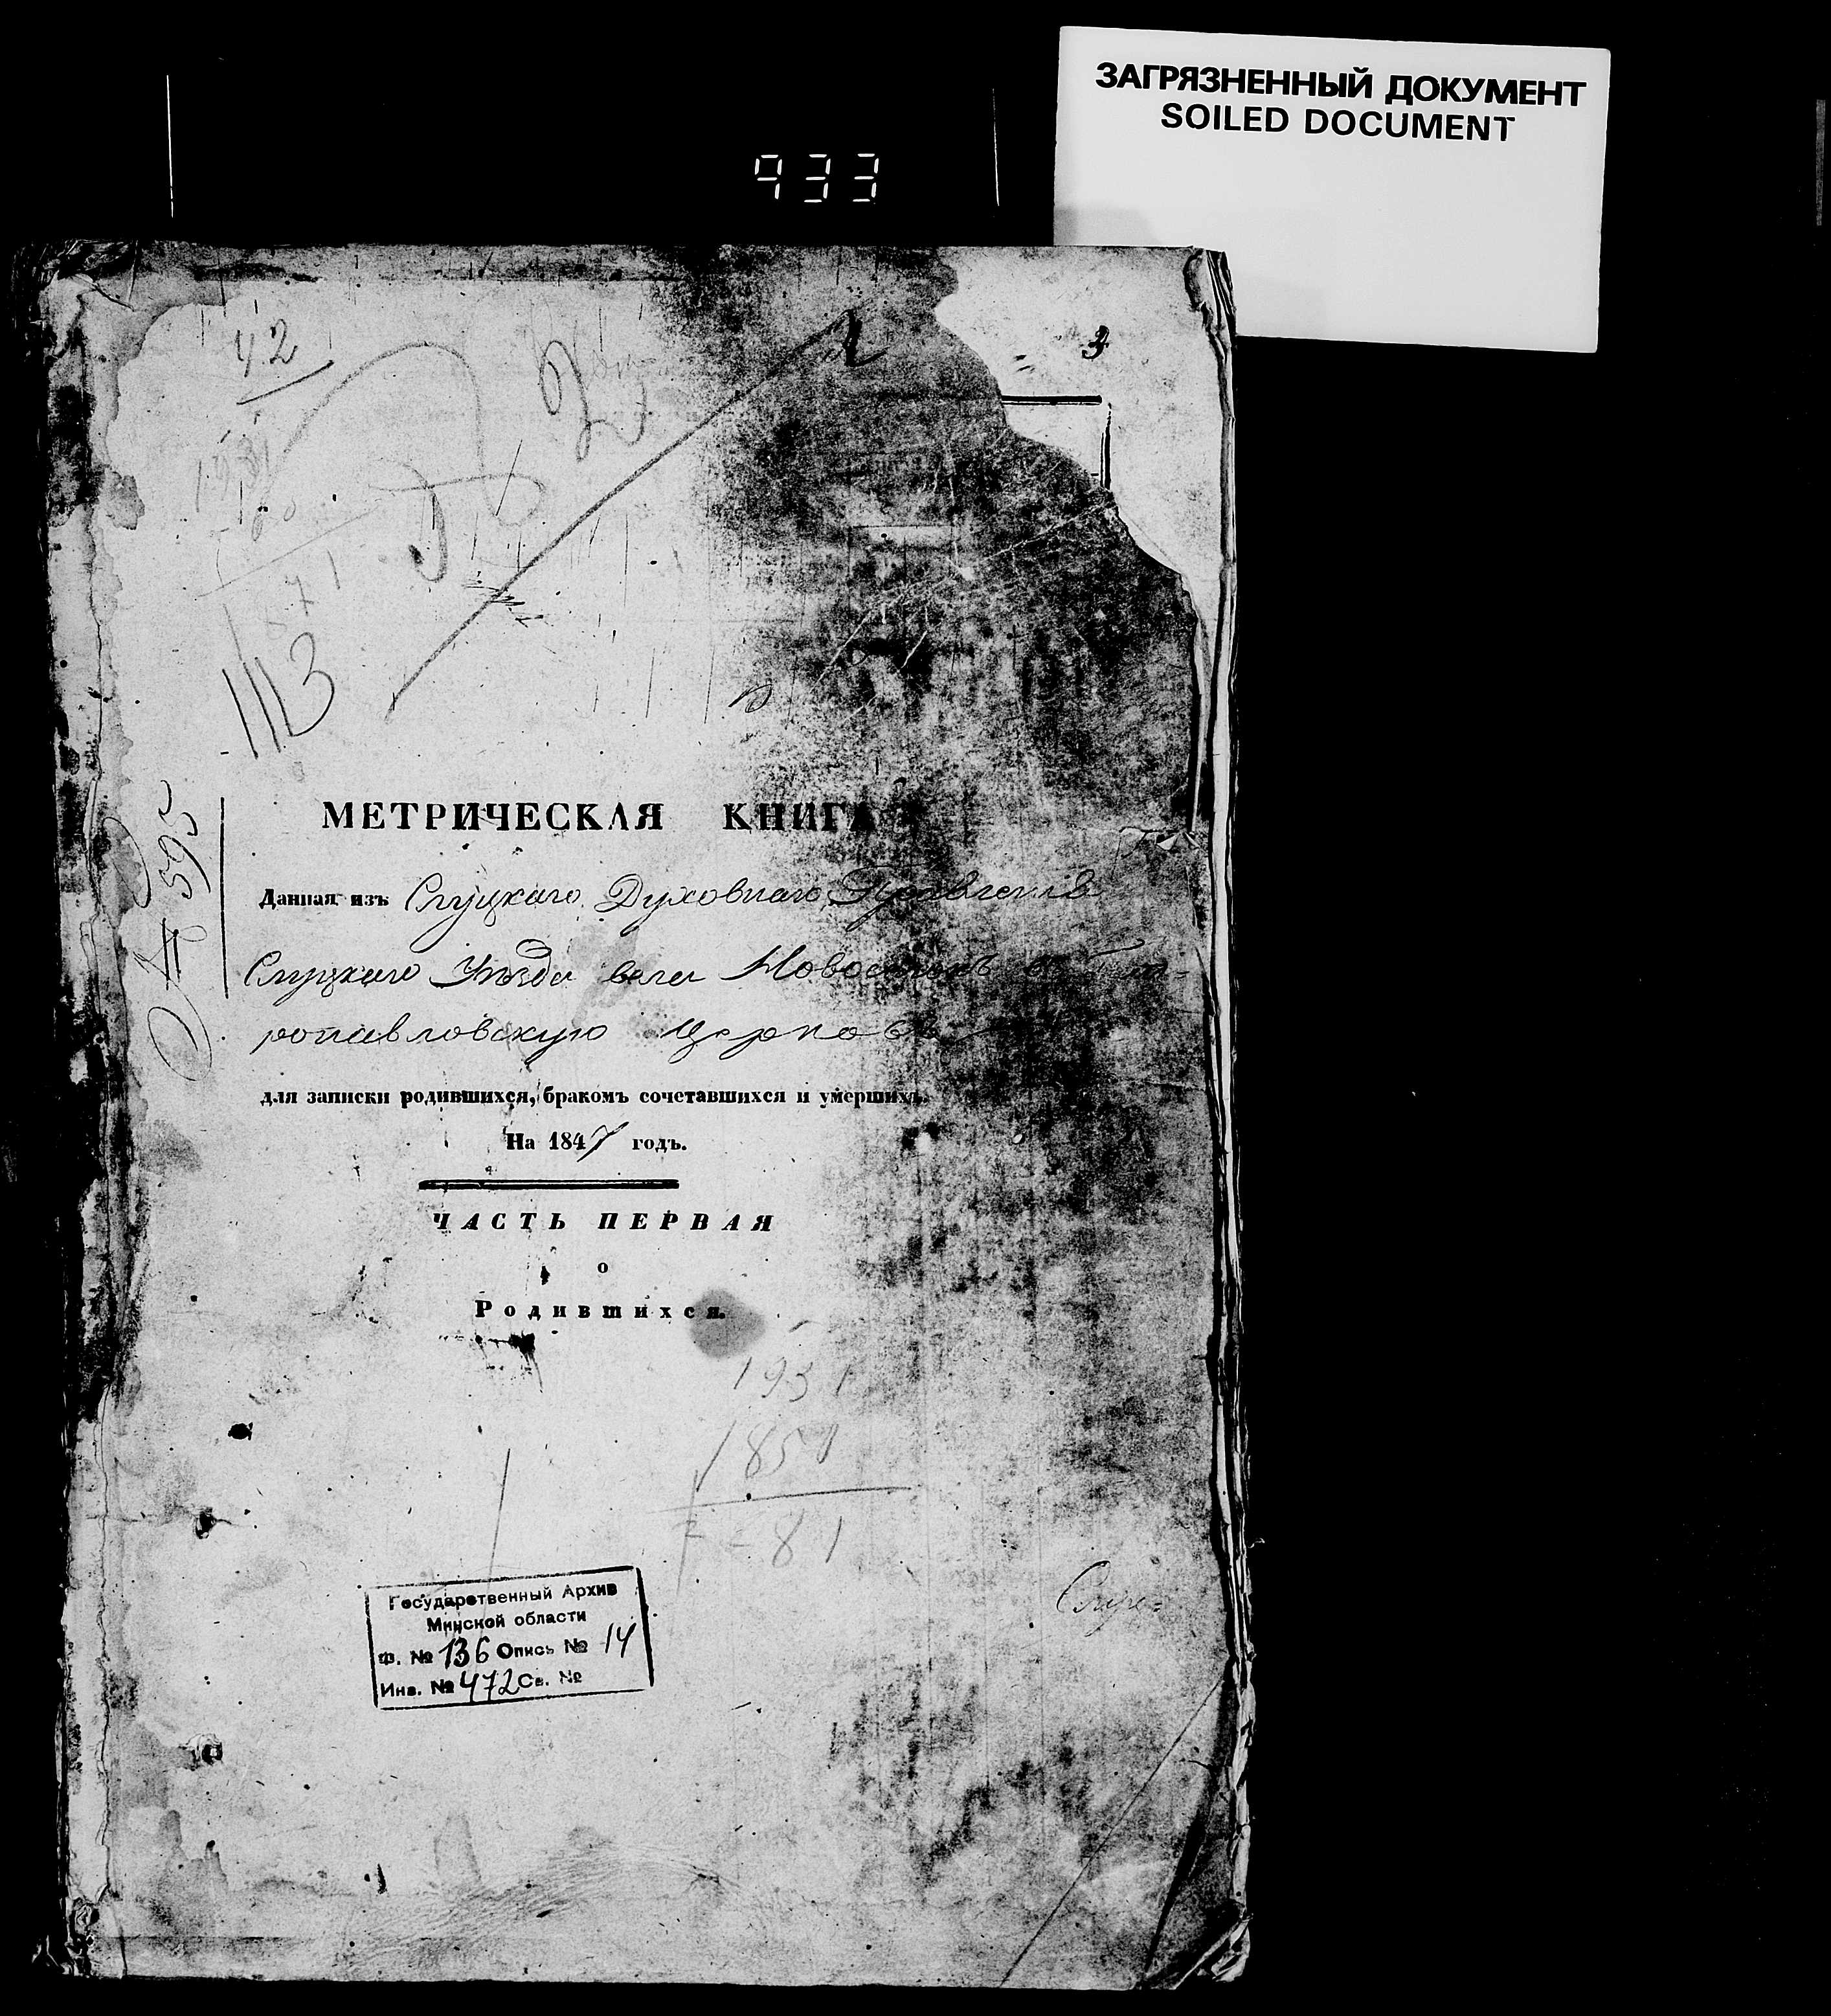 ЗАГРЯЗНЕННЫЙ ДОКУМЕНТ
SOILED DOCUMENT
933
3
42
2
1113
№ 595
МЕТРИЧЕСКАЯ КНИГА
Данная изъ Слуцкаго Духовнаго Правленія
Слуцкаго Уѣзда села въ Пет-
ропавловскую церковь
для записки родившихся, бракомъ сочетавшихся и умершихъ.
На 1847 годъ.
ЧАСТЬ ПЕРВАЯ
о
Родившихся.
1931
1851
81
Государственный Архив
Минской области
Ф. № 136 Опись № 14
Инв. № 472 Св. №